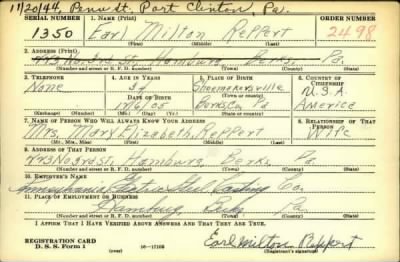 11/20/44, Penn St. Port Clinton, Pa.
SERIAL NUMBER 1. NAME (Print) ORDER NUMBER
1350 Earl Milton Reppert 2498
(First) (Middle) (Last)
2. ADDRESS (Print)
443 No. 3rd St. Hamburg Berks, Pa.
(Number and street or R. F. D. number) (Town) (County) (State)
3. TELEPHONE 4. AGE IN YEARS 5. PLACE OF BIRTH 6. COUNTRY OF CITIZENSHIP
None Shoemakersville U.S.A.
DATE OF BIRTH (Town or county)
05 Berks, Co, Pa America
(Exchange) (Number) (Mo.) (Day) (Yr.) (State or country)
7. NAME OF PERSON WHO WILL ALWAYS KNOW YOUR ADDRESS 8. RELATIONSHIP OF THAT PERSON
Mrs. Mary Elizabeth Reppert Wife
(Mr., Mrs., Miss) (First) (Middle) (Last)
9. ADDRESS OF THAT PERSON
443 No. 3rd St, Hamburg, Berks, Pa.
(Number and street or R. F. D. number) (Town) (County) (State)
10. EMPLOYER'S NAME
Pennsylvania Electric Steel Casting Co.
11. PLACE OF EMPLOYMENT OR BUSINESS
Hamburg, Berks, Pa.
(Number and street or R. F. D. number) (Town) (County) (State)
I AFFIRM THAT I HAVE VERIFIED ABOVE ANSWERS AND THAT THEY ARE TRUE.
REGISTRATION CARD
D. S. S. Form 1 16-17105 Earl Milton Reppert
(Registrant's signature)